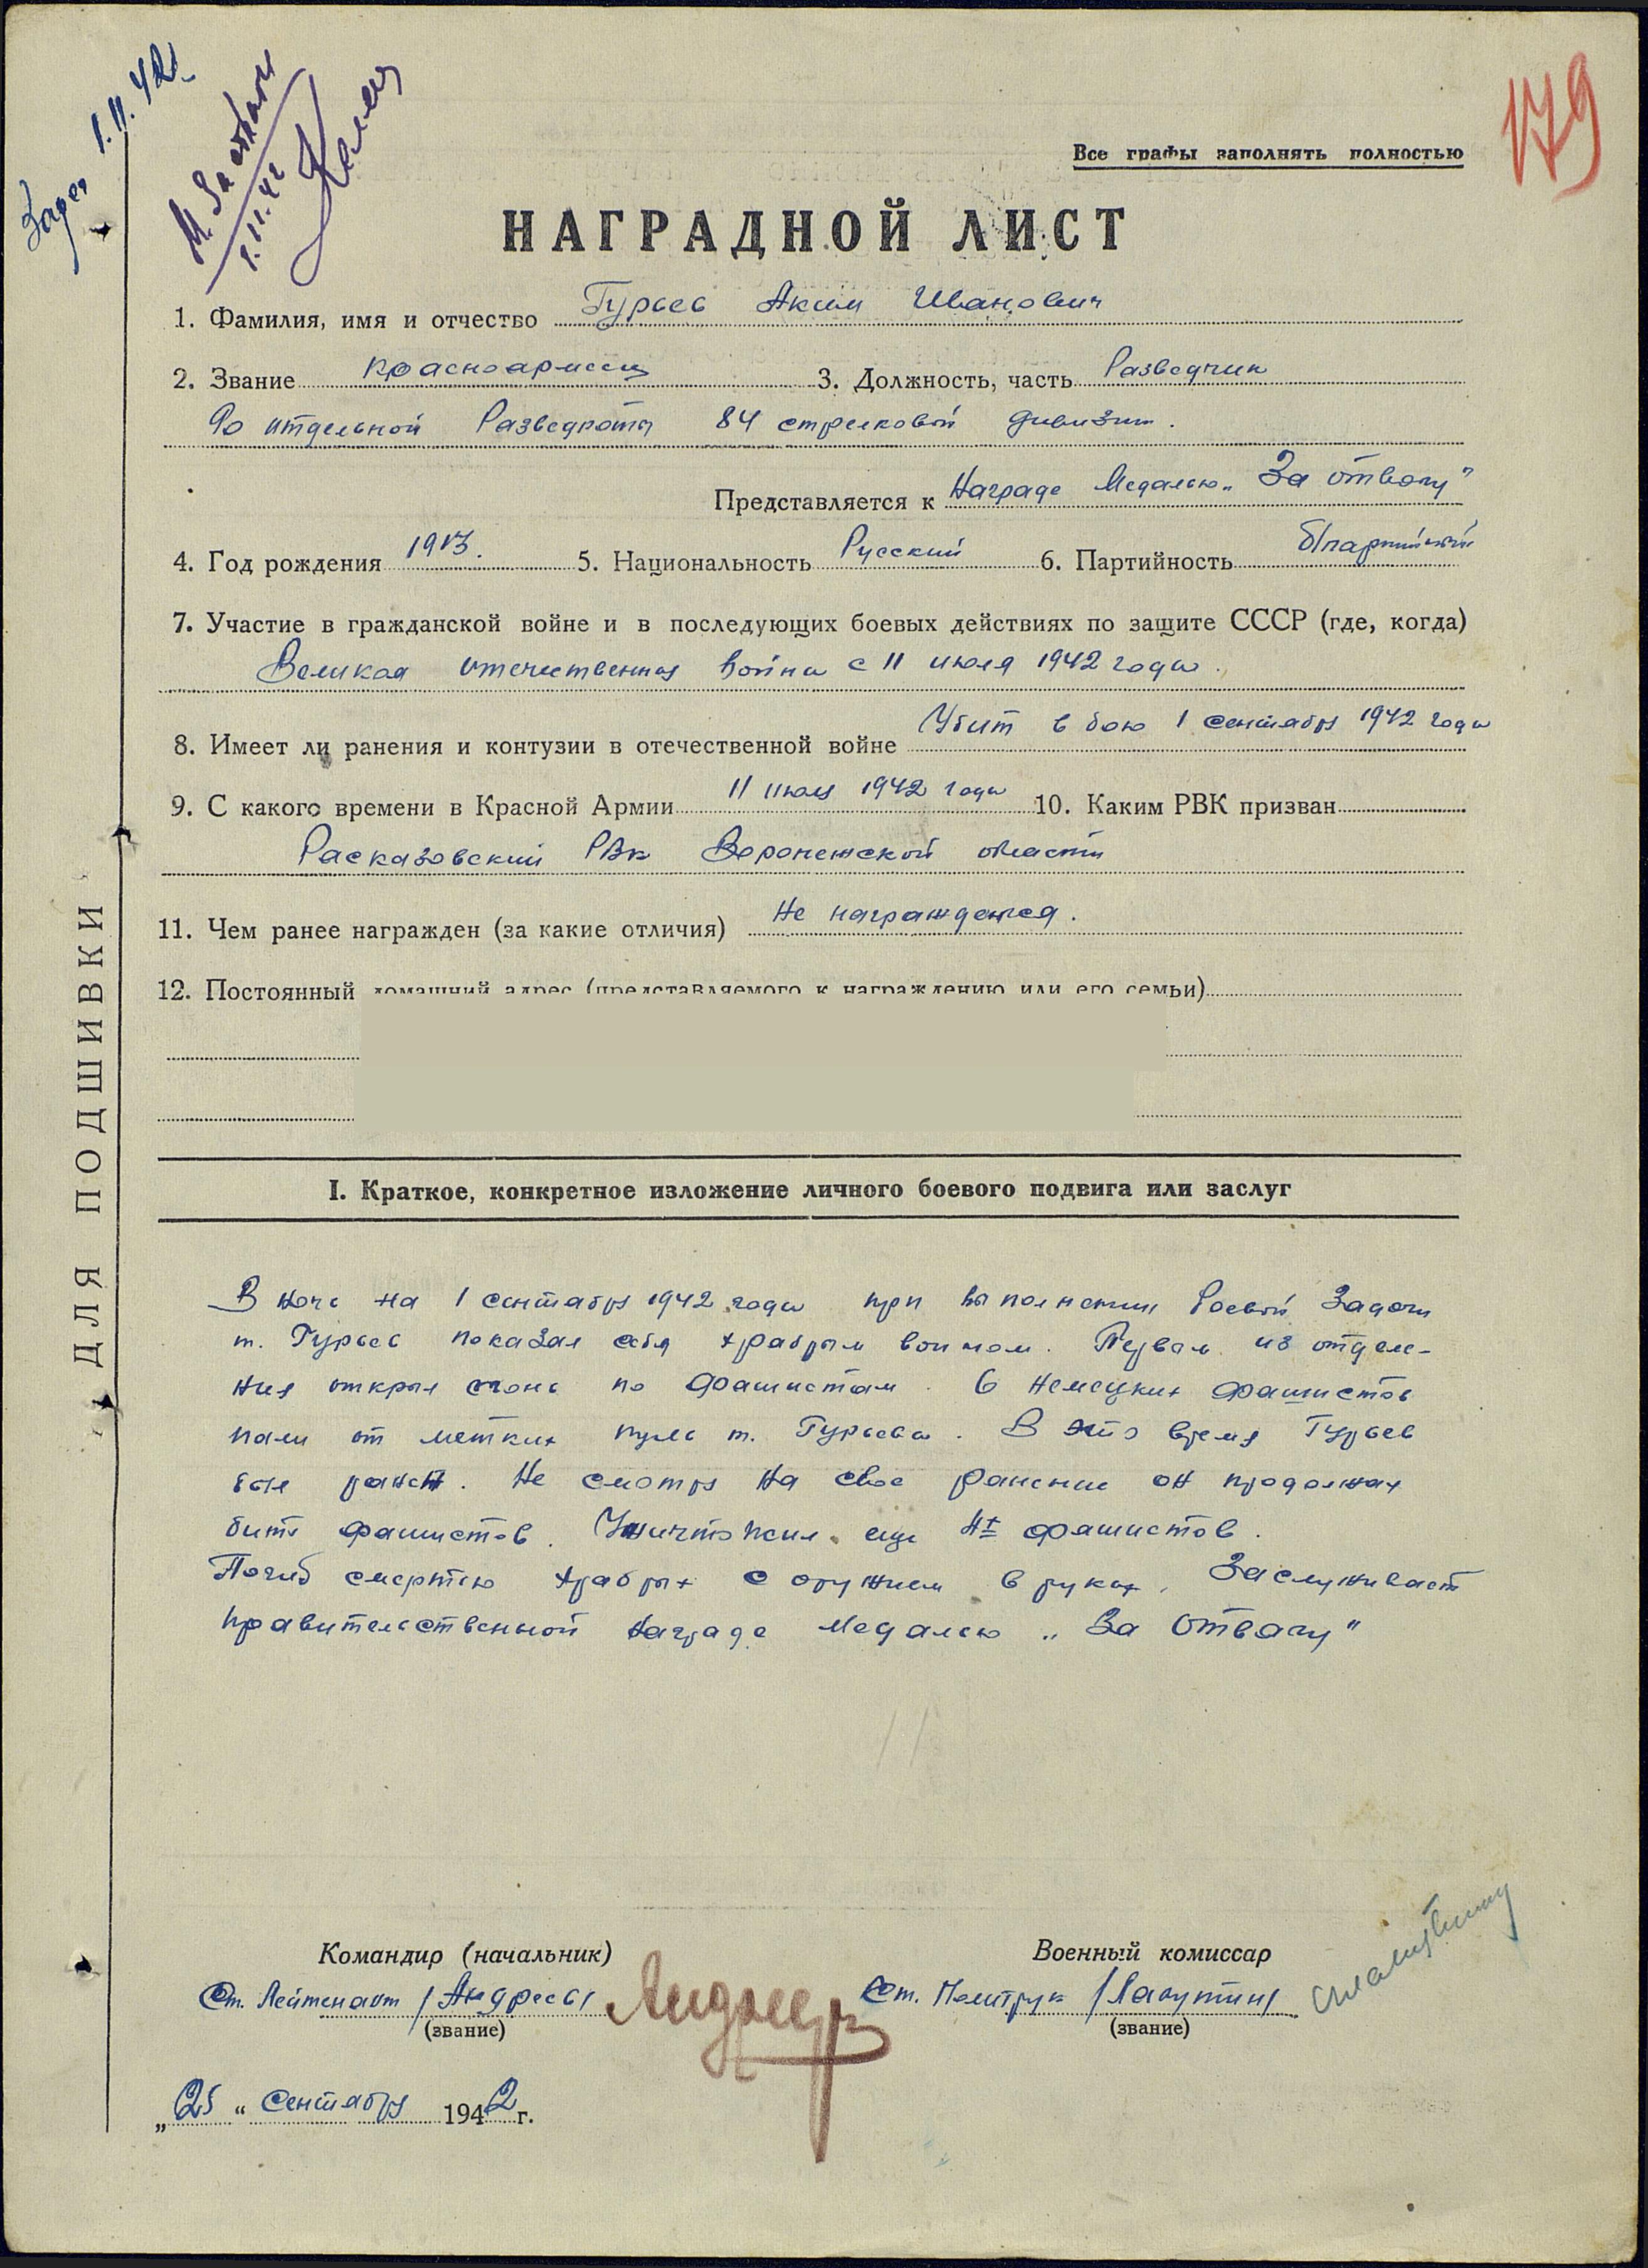 1.11.42
М. За отвагу
1.11.42
179
Все графы заполнять полностью
НАГРАДНОЙ ЛИСТ
1. Фамилия, имя и отчество Гурьев Аким Иванович
2. Звание красноармеец 3. Должность, часть Разведчик
90 отдельной Разведрота 84 стрелковой дивизии.
Представляется к Награде Медалью „За отвагу"
4. Год рождения 1913. 5. Национальность Русский 6. Партийность б/партийный
7. Участие в гражданской войне и в последующих боевых действиях по защите СССР (где, когда)
Великая отечественная война с 11 июля 1942 года.
8. Имеет ли ранения и контузии в отечественной войне Убит в бою 1 сентября 1942 года
9. С какого времени в Красной Армии 11 июля 1942 года 10. Каким РВК призван
Расказовский РВК Воронежской области
11. Чем ранее награжден (за какие отличия) Не награждался.
12. Постоянный домашний адрес (представляемого к награждению или его семьи)
ДЛЯ ПОДШИВКИ
I. Краткое, конкретное изложение личного боевого подвига или заслуг
В ночь на 1 сентября 1942 года при выполнении боевой задачи
т. Гурьев показал себя храбрым воином. Первым из отделе-
ния открыл огонь по фашистам. 6 немецких фашистов
пали от метких пуль т. Гурьева. В это время Гурьев
был ранен. Не смотря на свое ранение он продолжал
бить фашистов. Уничтожил еще 4х фашистов.
Погиб смертью храбрых с оружием в руках. Заслуживает
правительственной награде Медалью „За Отвагу"
Командир (начальник) Военный комиссар
Ст. Лейтенант /Андреев/ Ст. Политрук /Лагутин/
(звание) (звание)
„25" сентября 1942 г.